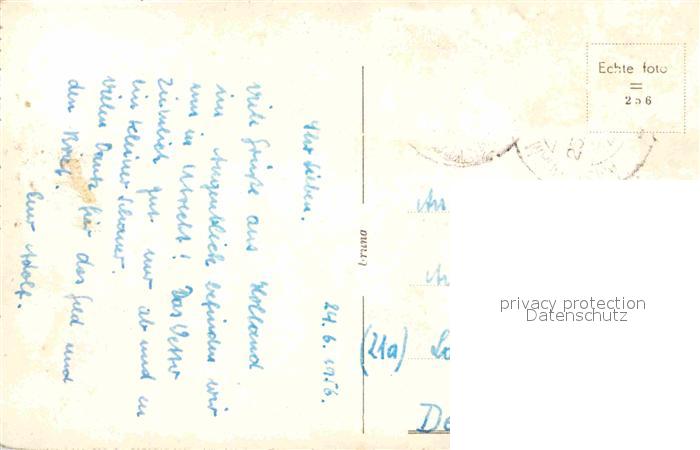 24.6.1956.
Ihr Lieben.
Viele Grüße aus Holland
im Augenblick befinden wir
uns in Utrecht! Das Wetter
ziemlich gut nur ab und zu
ein kleiner Schauer.
Vielen Dank für das Geld und
den Brief.
Euer Adolf.
Echte foto
=
256
An
(21a)
De
privacy protection
Datenschutz